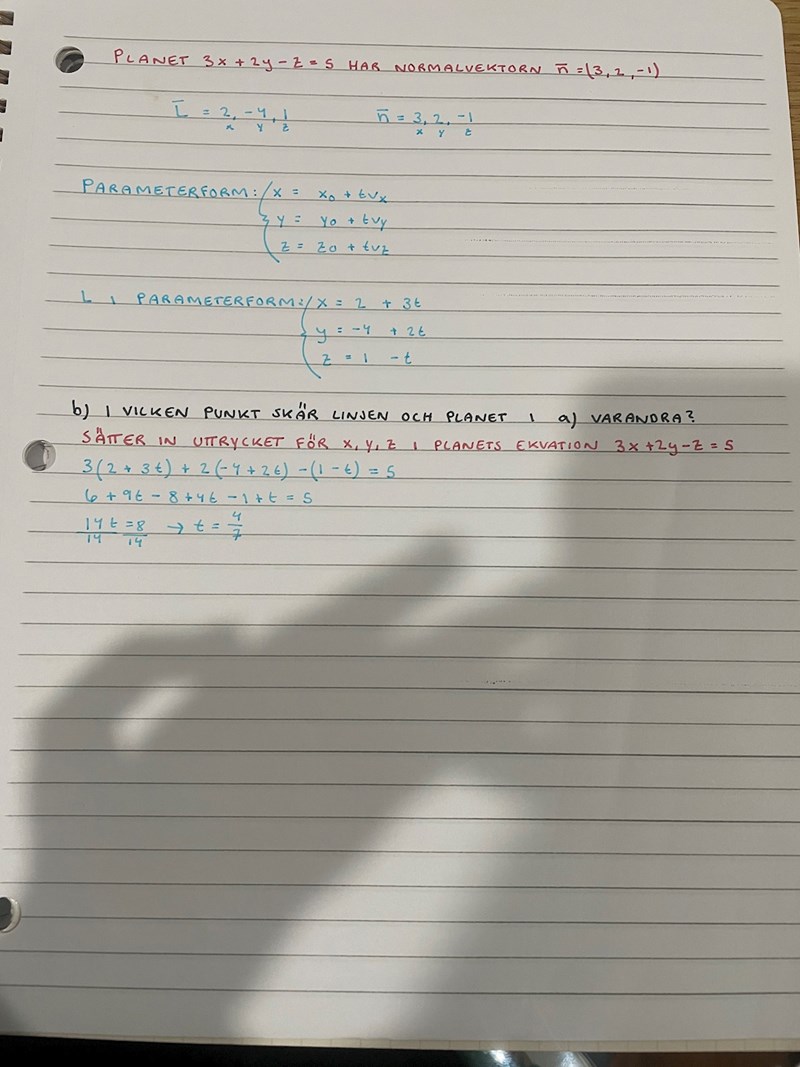 PLANET 3x + 2y - z = 5 HAR NORMALVEKTORN n̄ = (3, 2, -1)
L̄ = 2, -4, 1 n̄ = 3, 2, -1
x y z x y z
PARAMETERFORM: { x = x0 + tvx
y = y0 + tvy
z = z0 + tvz
L I PARAMETERFORM: { x = 2 + 3t
y = -4 + 2t
z = 1 - t
b) I VILKEN PUNKT SKÄR LINJEN OCH PLANET I a) VARANDRA?
SÄTTER IN UTTRYCKET FÖR X, Y, Z I PLANETS EKVATION 3x + 2y - z = 5
3(2 + 3t) + 2(-4 + 2t) - (1 - t) = 5
6 + 9t - 8 + 4t - 1 + t = 5
14t/14 = 8/14 → t = 4/7